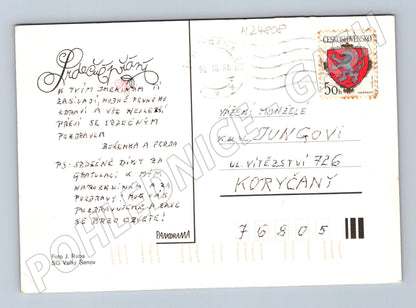 H24808
Srdečné přání
K TVÝM JMENINÁM TI
ZASÍLAJÍ, HODNĚ PEVNÉHO
ZDRAVÍ A VŠE NEJLEPŠÍ,
PŘEJÍ SE SRDEČNÝM
POZDRAVEM
BOŽENKA A FERDA
PS: SRDEČNÉ DÍKY ZA
GRATULACI K MÝM
NAROZENINÁM A ZA
POZDRAVY!
POZDRAVUJEME A ZASE
SE BRZO OZVĚTE!
PANORAMA
Foto J. Rába
SG Velký Šenov
ČESKOSLOVENSKO
50h
VÁŽENÍ MANŽELÉ
JUNGOVI
UL VÍTĚZSTVÍ 726
KORYČANY
76805
POHLEDNICE